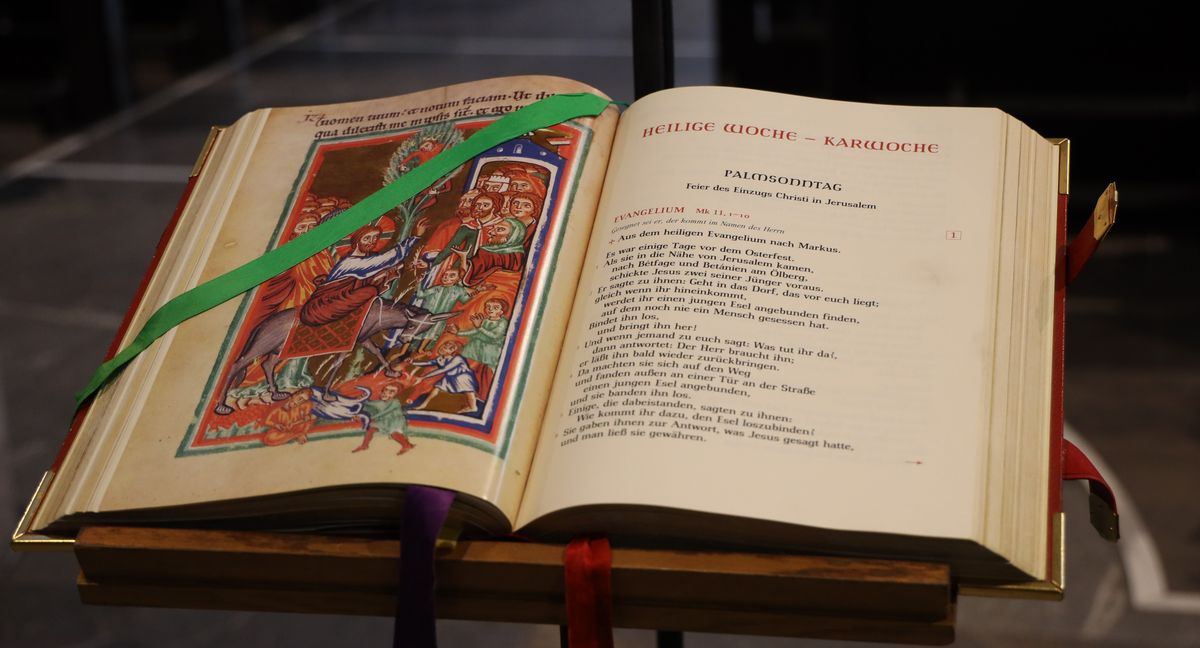 nomen tuum et notum faciam. Ut
qua dilexisti me in ipsis sit. et ego
HEILIGE WOCHE – KARWOCHE
PALMSONNTAG
Feier des Einzugs Christi in Jerusalem
EVANGELIUM Mk 11, 1–10
1
Gesegnet sei er, der kommt im Namen des Herrn
+ Aus dem heiligen Evangelium nach Markus.
Es war einige Tage vor dem Osterfest.
Als sie in die Nähe von Jerusalem kamen,
nach Betfage und Betanien am Ölberg,
schickte Jesus zwei seiner Jünger voraus.
Er sagte zu ihnen: Geht in das Dorf, das vor euch liegt;
gleich wenn ihr hineinkommt,
werdet ihr einen jungen Esel angebunden finden,
auf dem noch nie ein Mensch gesessen hat.
Bindet ihn los,
und bringt ihn her!
Und wenn jemand zu euch sagt: Was tut ihr da?,
dann antwortet: Der Herr braucht ihn;
er läßt ihn bald wieder zurückbringen.
Da machten sie sich auf den Weg
und fanden außen an einer Tür an der Straße
einen jungen Esel angebunden,
und sie banden ihn los.
Einige, die dabeistanden, sagten zu ihnen:
Wie kommt ihr dazu, den Esel loszubinden?
Sie gaben ihnen zur Antwort, was Jesus gesagt hatte,
und man ließ sie gewähren.